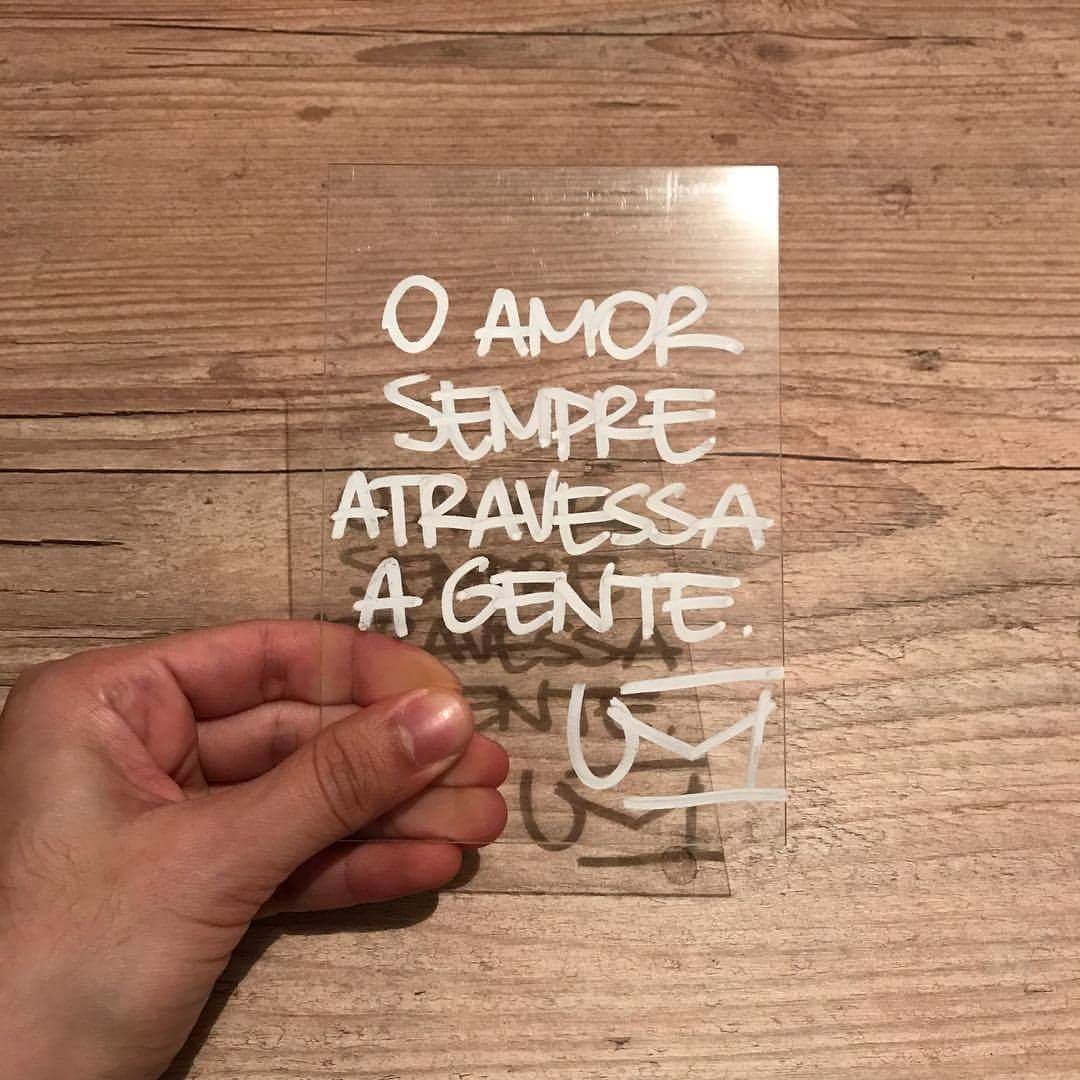 O AMOR
SEMPRE
ATRAVESSA
A GENTE.
UM